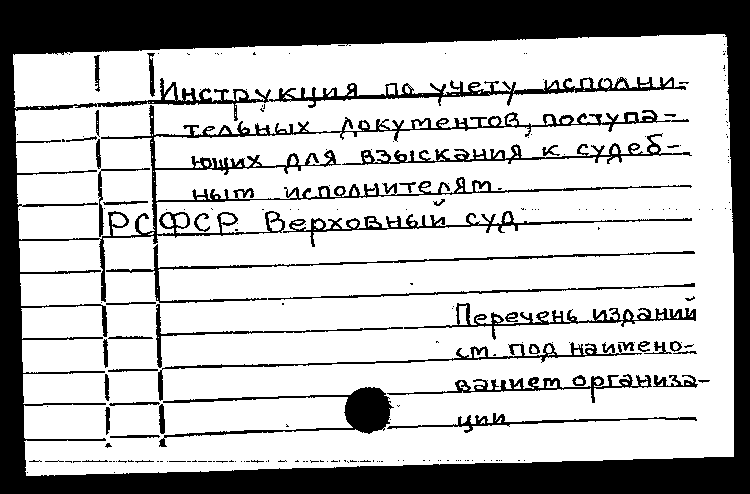 Инструкция по учету исполни-
тельных документов, поступа-
ющих для взыскания к судеб-
ным исполнителям.
РСФСР. Верховный суд.
Перечень изданий
см. под наимено-
ванием организа-
ции